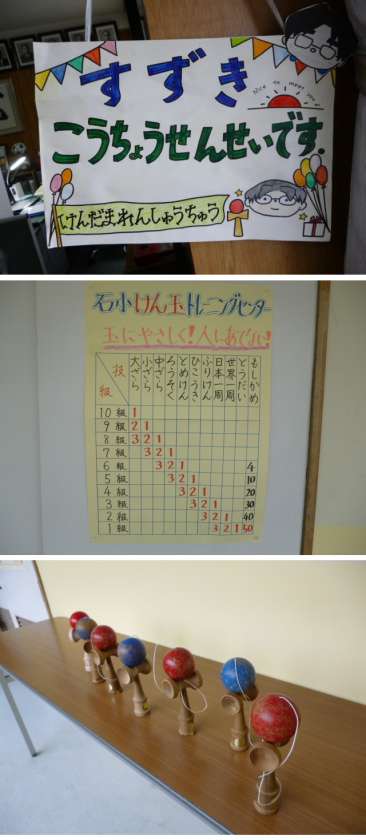 すずき
Nice to meet you
こうちょうせんせいです.
けんだまれんしゅうちゅう
石小けん玉トレーニングセンター
玉にやさしく!人にあてない!
技 級 大ざら 小ざら 中ざら ろうそく とめけん ひこうき ふりけん 日本一周 世界一周 とうだい もしかめ
10級 1
9級 2 1
8級 3 2 1
7級 3 2 1
6級 3 2 1 4
5級 3 2 1 10
4級 3 2 1 20
3級 3 2 1 30
2級 3 2 1 40
1級 3 2 1 50